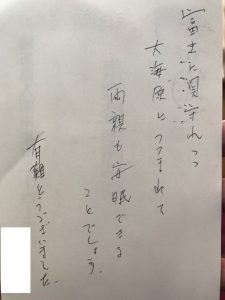 富士に見守れつつ
大海原とつつまれて
両親も安眠できる
ことでしょう。
有難とうございました。